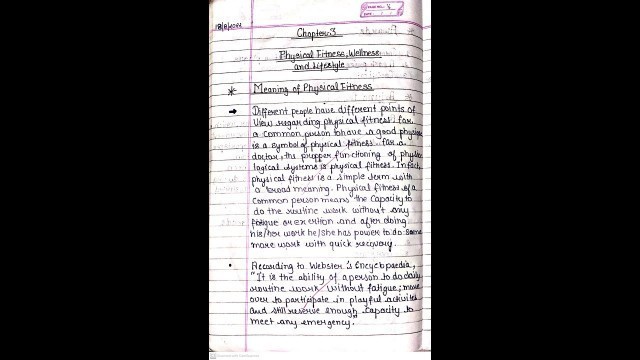 Chapter:3
Physical Fitness, Wellness
and Lifestyle
* Meaning of Physical Fitness
→ Different people have different points of
view regarding physical fitness. For
a common person to have a good physique
is a symbol of physical fitness. For a
doctor, the propper functioning of physio
logical systems is physical fitness. In fact,
physical fitness is a simple term with
a broad meaning. Physical fitness of a
common person means the capacity to
do the routine work without any
fatigue or exertion and after doing
his/her work he/she has power to do some
more work with quick recovery.
• According to Webster's Encyclopaedia,
"It is the ability of a person to do daily
routine work without fatigue; more
over to participate in playful activites
and still reserve enough capacity to
meet any emergency."